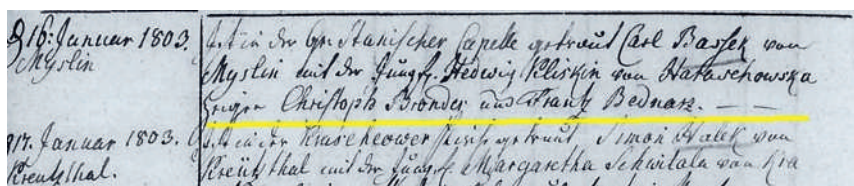 D 16: Januar 1803.
Myslin
Ist in der Gr: Stanischer Capelle getraut Carl Bassek von
Myslin mit der Jungf. Hedwig Kliskin von Hatawchowska
Zeugen Christoph Brondes und Frantz Bednarz. — —
D 17. Januar 1803.
Kreutzthal.
Ist in der Kirch getraut Simon Halek von
Kreutzthal mit der Jungf. Margaretha Schwitala von Kra